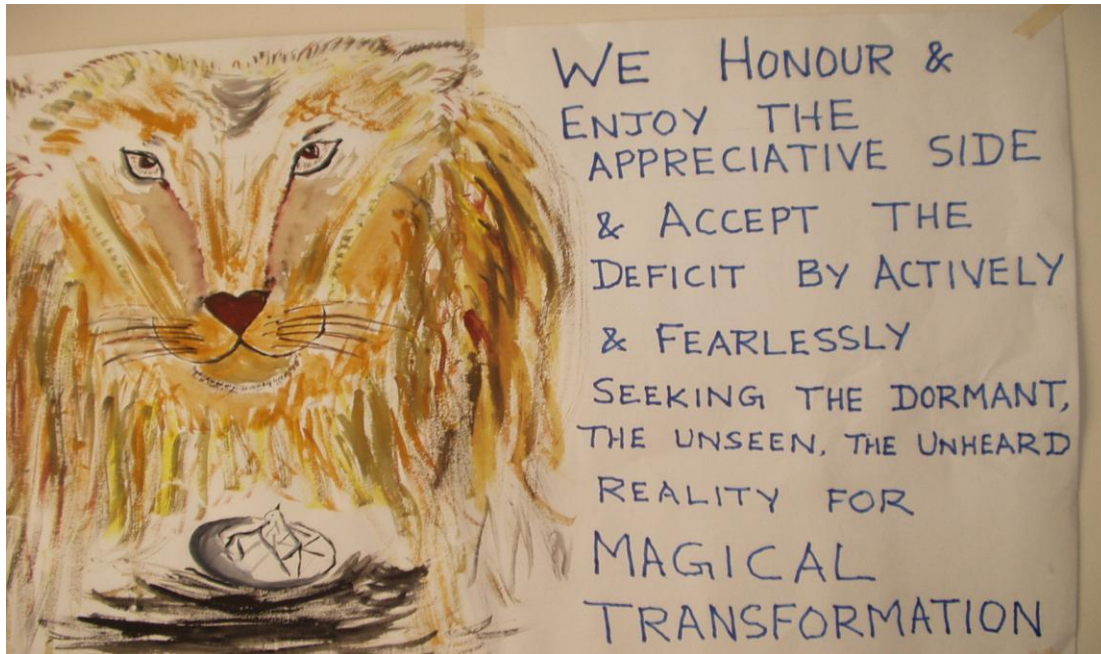 WE HONOUR &
ENJOY THE
APPRECIATIVE SIDE
& ACCEPT THE
DEFICIT BY ACTIVELY
& FEARLESSLY
SEEKING THE DORMANT,
THE UNSEEN, THE UNHEARD
REALITY FOR
MAGICAL
TRANSFORMATION